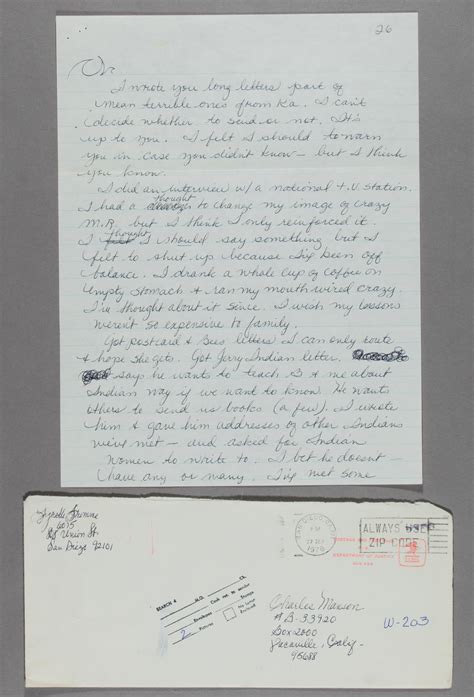 26
I wrote you long letters part of
mean terrible ones from Ka. I can't
decide whether to send or not. It's
up to you. I felt I should to warn
you in case you didn't know - but I think
you know.
I did an interview w/ a national t.v. station.
I had a thought to change my image of crazy
M.R. but I think I only reinforced it.
I thought I should say something but I
felt to shut up because I've been off
balance. I drank a whole cup of coffee on
empty stomach & ran my mouth-wired crazy.
I've thought about it since. I wish my lessons
weren't so expensive to family.
Got postcard & Bees letters I can only route
& hope she gets. Got Jerry Indian letter.
says he wants to teach B & me about
Indian way if we want to know. He wants
others to send us books (a few). I wrote
him & gave him addresses of other Indians
we've met - and asked for Indian
women to write to. I bet he doesn't -
have any or many. I've met some
6015
Union St.
San Diego 92101
PM
1976
ALWAYS USE
ZIP CODE
DEPARTMENT OF JUSTICE
MARCH 4
M.O.
Ck.
Cash ret to sender
Stamps
2 Pictures
Enclosed
Charles Manson
# B-33920
Box 2000
Vacaville, Calif
95688
W-203